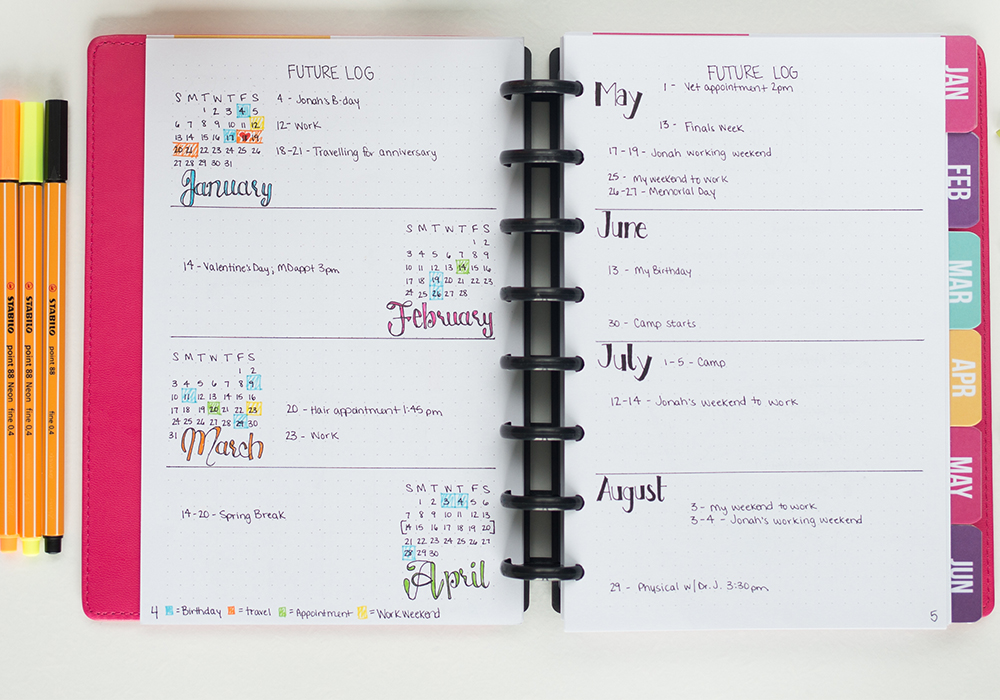 FUTURE LOG
S M T W T F S
1 2 3 4 5
6 7 8 9 10 11 12
13 14 15 16 17 18 19
20 21 22 23 24 25 26
27 28 29 30 31
January
4 - Jonah's B-day
12 - Work
18-21 - Travelling for anniversary
14 - Valentine's Day; MD appt 3pm
S M T W T F S
1 2
3 4 5 6 7 8 9
10 11 12 13 14 15 16
17 18 19 20 21 22 23
24 25 26 27 28
February
S M T W T F S
1 2
3 4 5 6 7 8 9
10 11 12 13 14 15 16
17 18 19 20 21 22 23
24 25 26 27 28 29 30
31
March
20 - Hair appointment 1:45 pm
23 - Work
14-20 - Spring Break
S M T W T F S
1 2 3 4 5 6
7 8 9 10 11 12 13
[14 15 16 17 18 19 20]
21 22 23 24 25 26 27
28 29 30
April
4 = Birthday = travel = Appointment = Work Weekend
FUTURE LOG
May
1 - Vet appointment 2pm
13 - Finals Week
17-19 - Jonah working weekend
25 - my weekend to work
26-27 - Memorial Day
June
13 - My Birthday
30 - Camp starts
July
1-5 - Camp
12-14 - Jonah's weekend to work
August
3 - my weekend to work
3-4 - Jonah's working weekend
29 - Physical w/Dr. J. 3:30pm
5
JAN
FEB
MAR
APR
MAY
JUN
STABILO point 88 Neon fine 0.4
STABILO point 88 Neon fine 0.4
STABILO point 88 fine 0.4